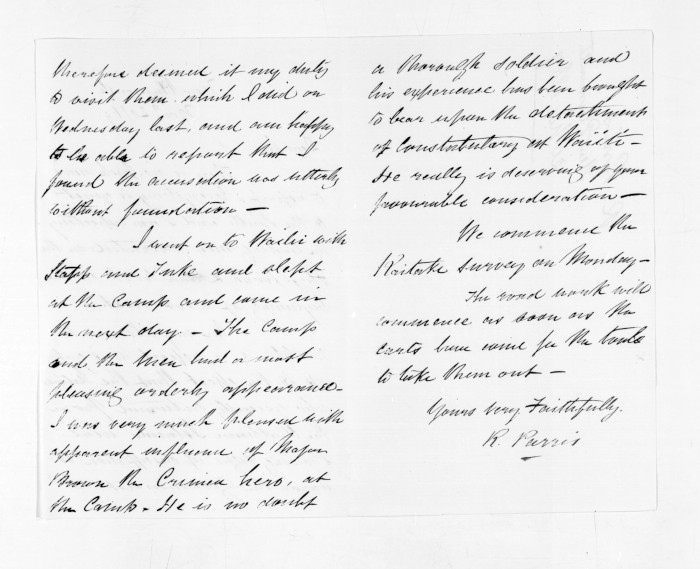 therefore deemed it my duty
to visit them which I did on
Wednesday last, and am happy
to be able to report that I
found the accusation was utterly
without foundation —
I went on to Waiihi with
Stapp and Tuke and slept
at the Camp and came in
the next day — The Camp
and the men had a most
pleasing orderly appearance —
I was very much pleased with
apparent influence of Major
Brown the Crimea hero, at
the Camp — He is no doubt
a thorough soldier and
his experience has been brought
to bear upon the detachment
of Constabulary at Waiihi —
He really is deserving of your
favourable consideration —
We commence the
Kaitake survey on Monday —
The road work will
commence as soon as the
carts have come for the tools
to take them out —
Yours very Faithfully.
R. Parris